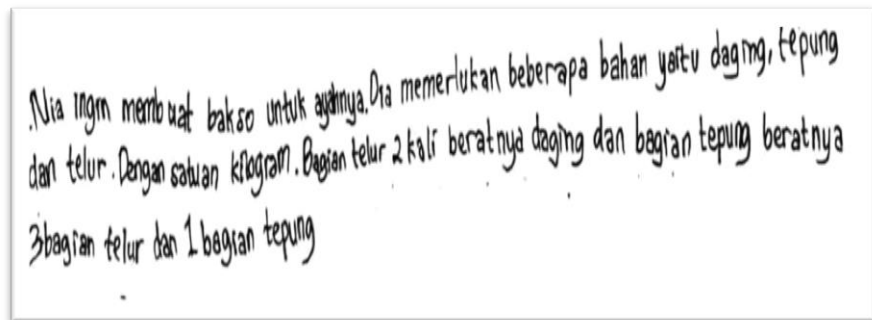 Nia ingin membuat bakso untuk ayahnya. Dia memerlukan beberapa bahan yaitu daging, tepung
dan telur. Dengan satuan kilogram. Bagian telur 2 kali beratnya daging dan bagian tepung beratnya
3 bagian telur dan 1 bagian tepung